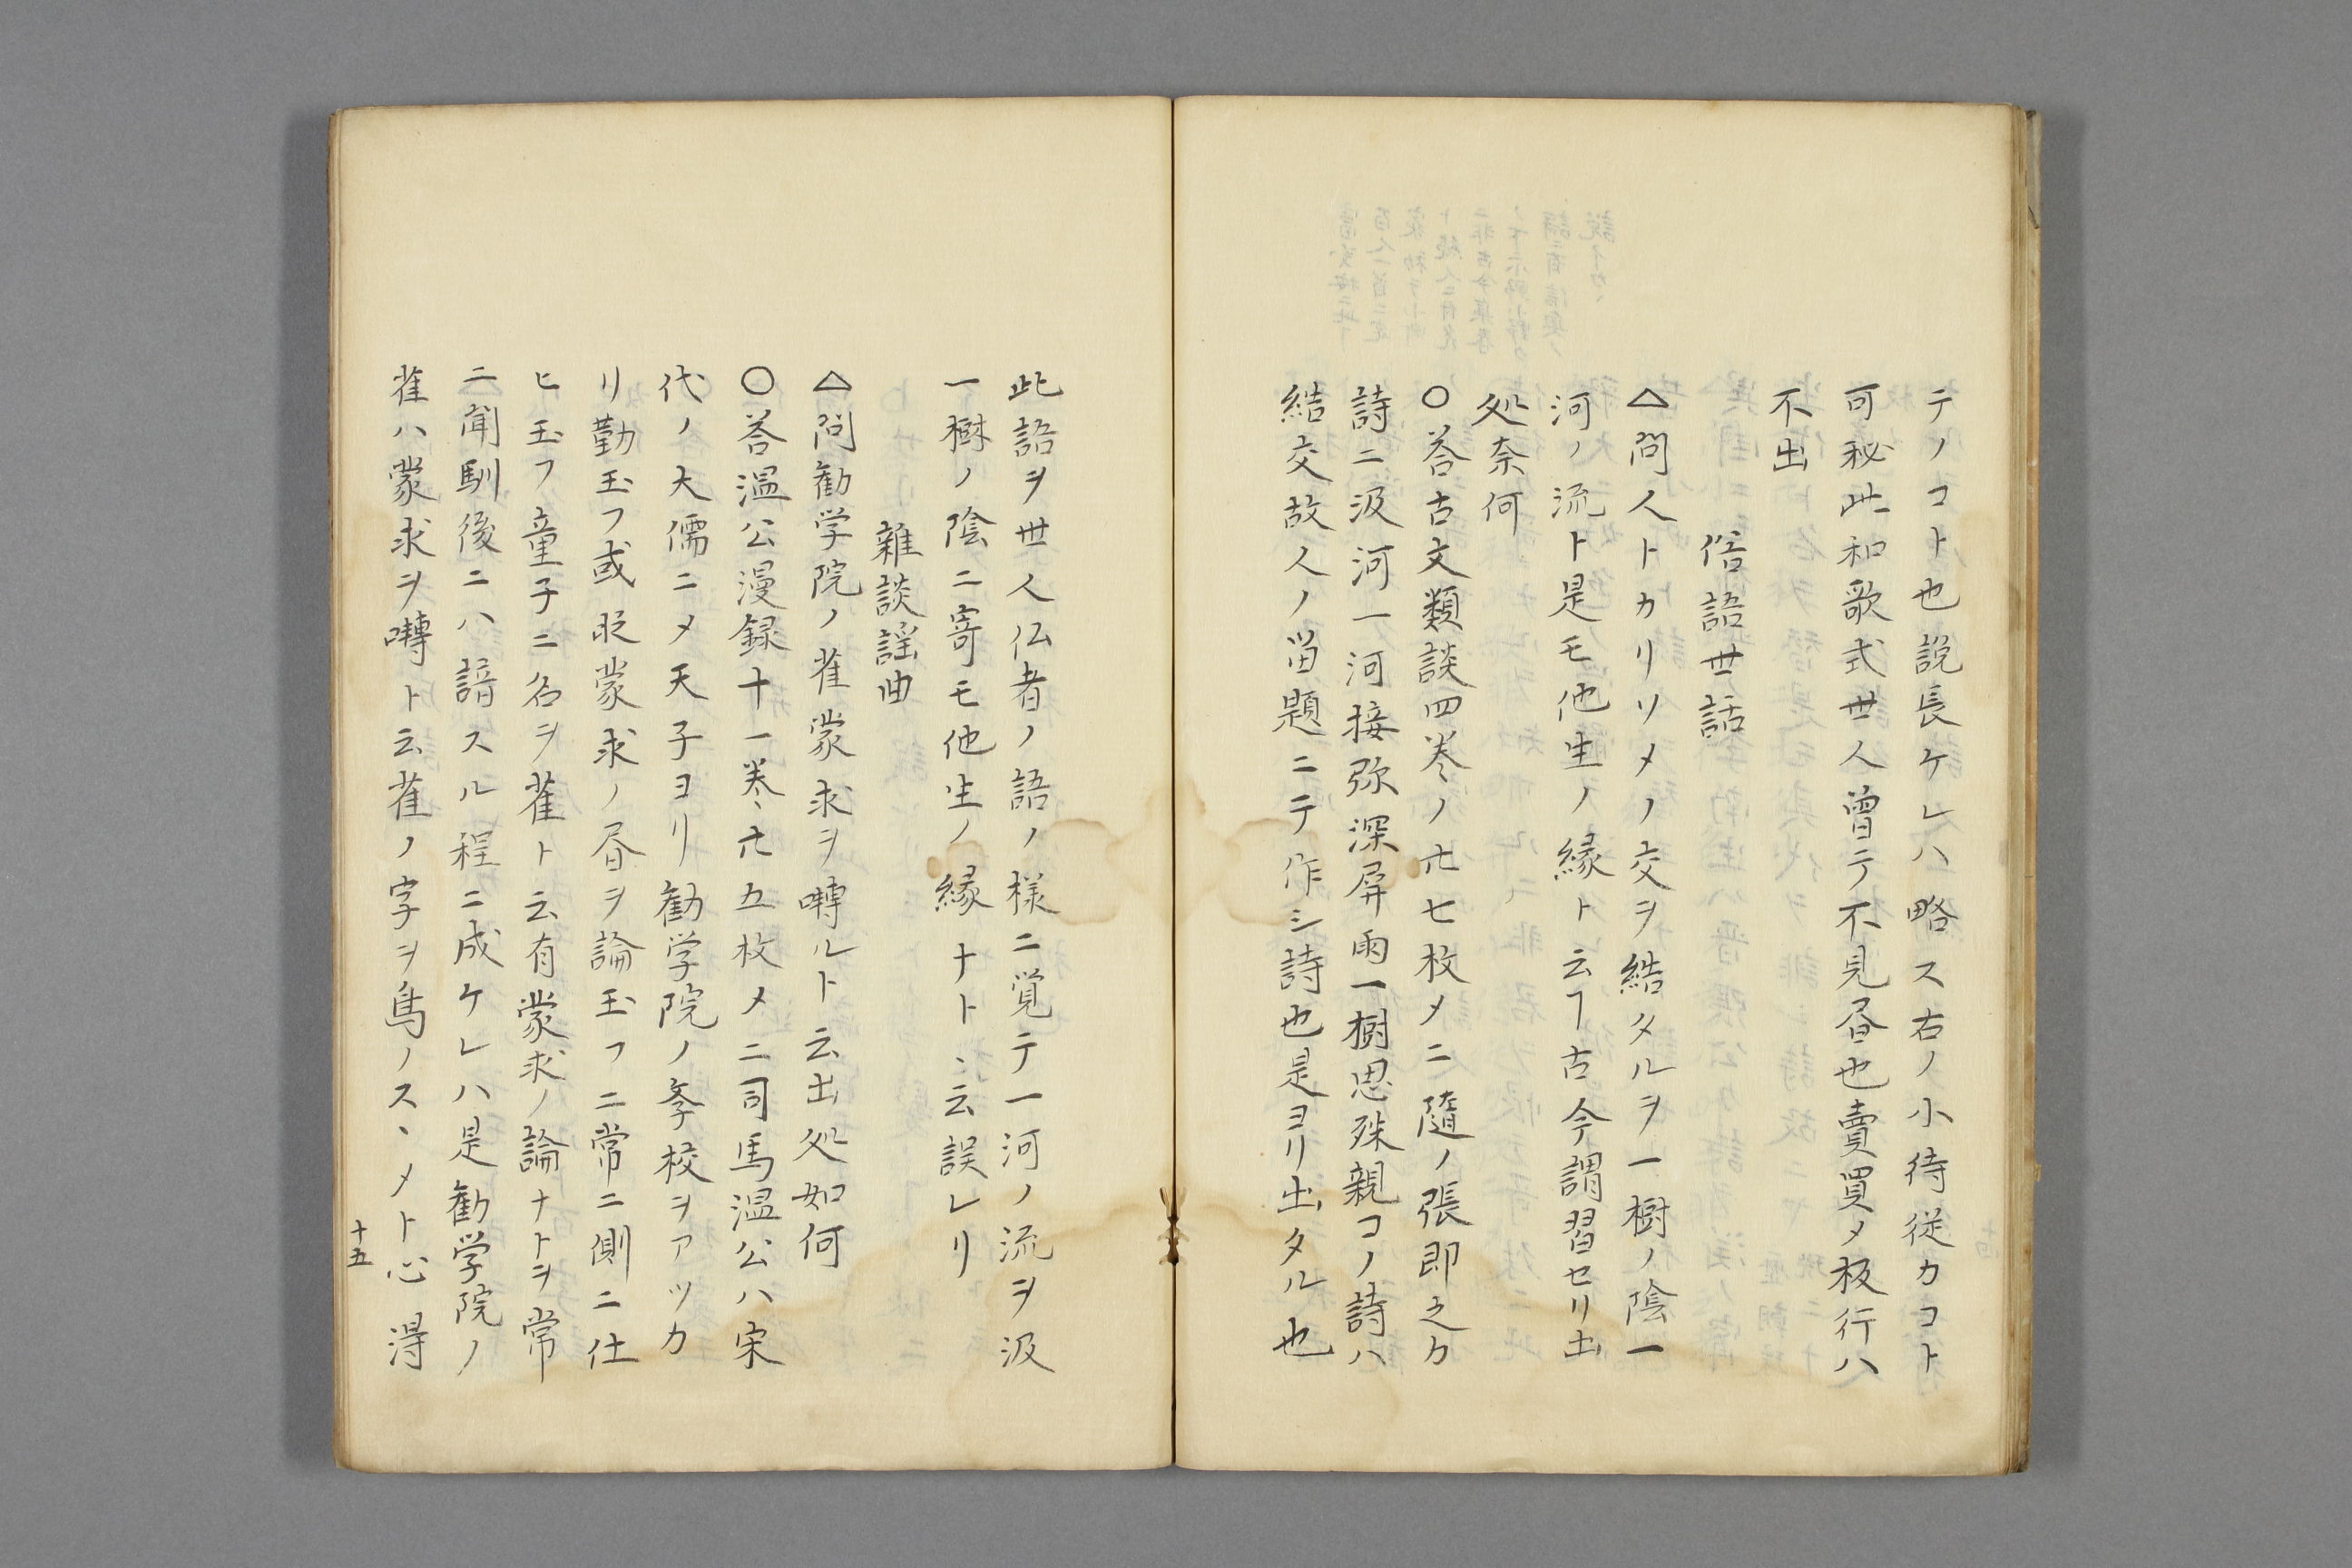 テノコト也説長ケレハ略ス右ノ小待従カコト
可秘此和歌式世人曽テ不見昏也賣買メ板行ハ
不出
俗語世話
△問人トカリソメノ交ヲ結タルヲ一樹ノ陰一
河ノ流ト是モ他生ノ縁ト云ヿ古今謂習セリ出
処奈何
○答古文類談四巻ノ卄七枚メニ隨ノ張即之カ
詩ニ汲河一河接弥深屏雨一樹思殊親コノ詩ハ
結交故人ノ畄題ニテ作シ詩也是ヨリ出タル也
此語ヲ世人仏者ノ語ノ様ニ覚テ一河ノ流ヲ汲
一樹ノ陰ニ寄モ他生ノ縁ナトヽ云誤レリ
雜談謡曲
△問勧学院ノ雀蒙求ヲ囀ルト云出処如何
○答温公漫録十一巻卄五枚メニ司馬温公ハ宋
代ノ大儒ニメ天子ヨリ勧学院ノ斈校ヲアツカ
リ勤玉フ或時蒙求ノ昏ヲ論玉フニ常ニ側ニ仕
ヒ玉フ童子ニ名ヲ雀ト云有蒙求ノ論ナトヲ常
ニ聞馴後ニハ諳スル程ニ成ケレハ是勧学院ノ
雀ハ蒙求ヲ囀ト云雀ノ字ヲ鳥ノスヽメト心得
十五